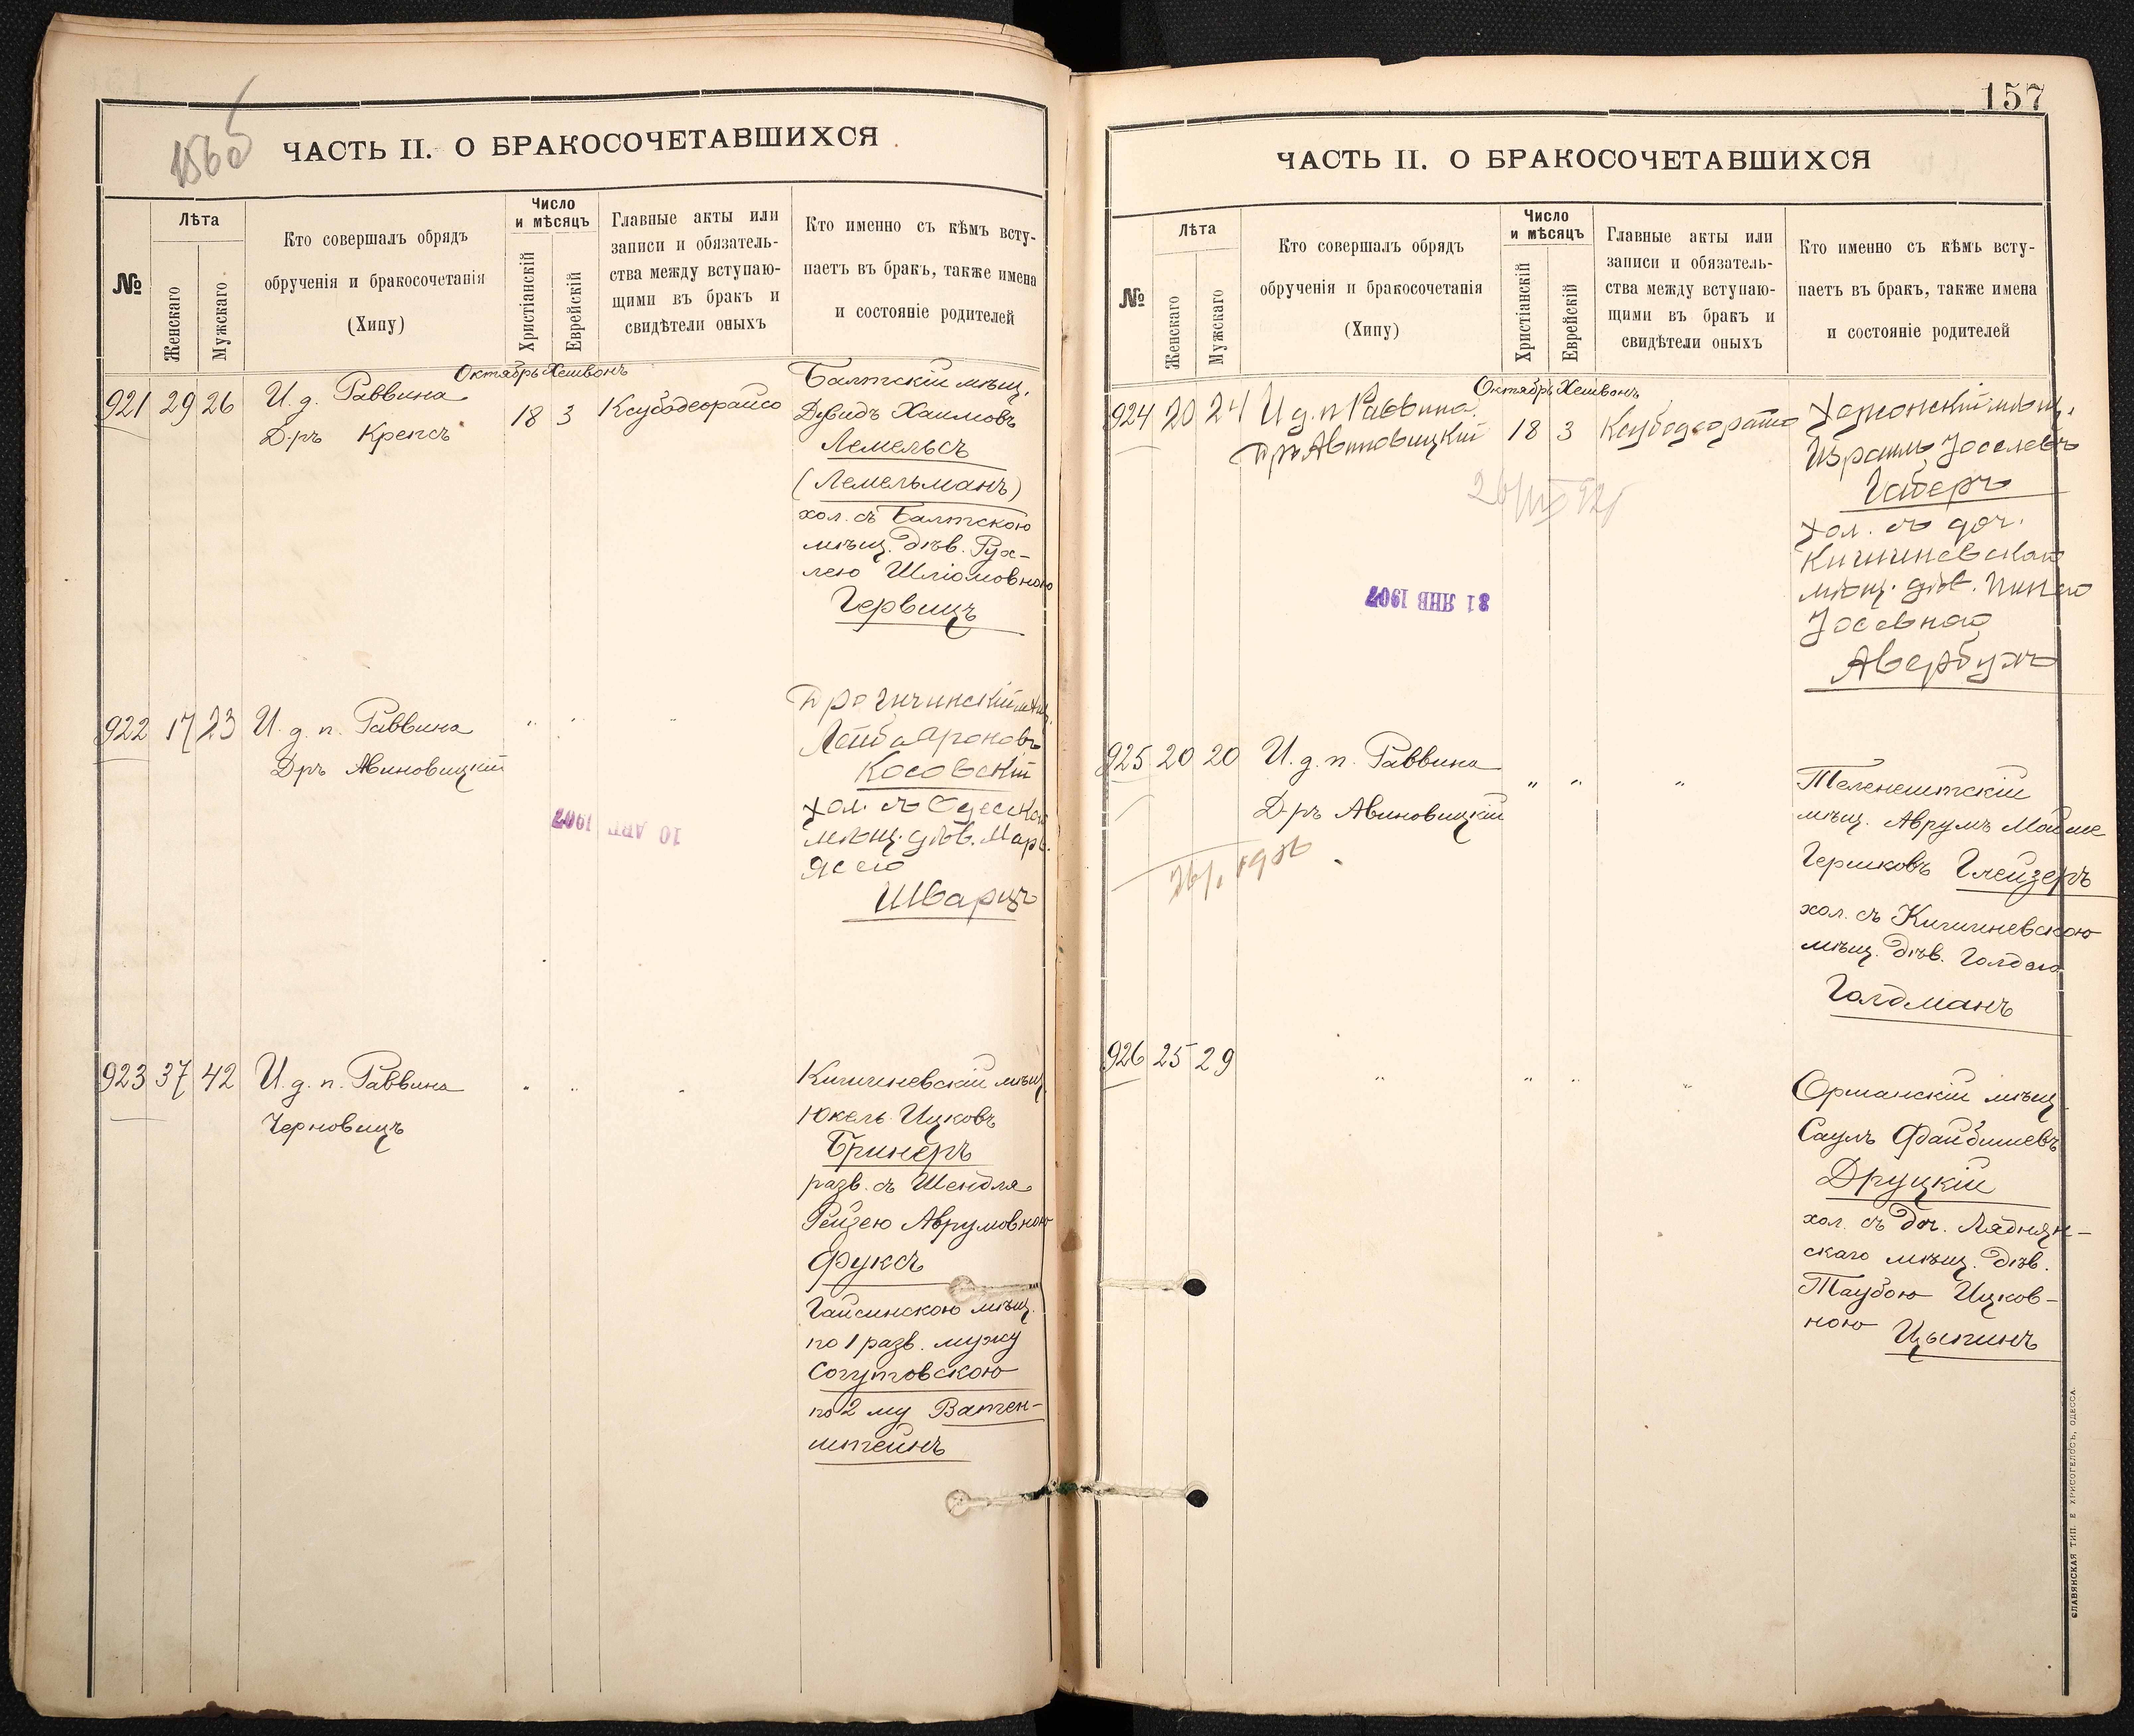 156 об
ЧАСТЬ II. О БРАКОСОЧЕТАВШИХСЯ
№
Лѣта
Женскаго
Мужскаго
Кто совершалъ обрядъ
обрученія и бракосочетанія
(Хипу)
Число
и мѣсяцъ
Христіанскій
Еврейскій
Главные акты или
записи и обязатель-
ства между вступаю-
щими въ бракъ и
свидѣтели оныхъ
Кто именно съ кѣмъ всту-
паетъ въ бракъ, также имена
и состояніе родителей
Октябрь Хешвонъ
921 29 26 И. д. Раввина
Д-ръ Крепсъ
18 3 Ксубодеорайсо
Балтскій мѣщ.
Дувидъ Хаимовъ
Лемельсъ
(Лемельманъ)
хол. съ Балтскою
мѣщ. дѣв. Рух-
лею Шліомовною
Гервицъ
922 17 23 И. д. п. Раввина
Д-ръ Авиновицкій
" " "
Лейба Ароновъ
Косовскій
хол. съ Одесской
мѣщ. дѣв. Марь.
Ясею
Шварцъ
10 АВГ 1907
923 37 42 И. д. п. Раввина
Черновицъ
" " "
Кишиневскій мѣщ.
Юкель Ицковъ
Бринеръ
разв. съ Шендля
Рейзею Аврумовною
Фуксъ
Гайсинскою мѣщ.
по 1 разв. мужу
Согутовскою
по 2 му Ватен-
штейнъ
157
ЧАСТЬ II. О БРАКОСОЧЕТАВШИХСЯ
№
Лѣта
Женскаго
Мужскаго
Кто совершалъ обрядъ
обрученія и бракосочетанія
(Хипу)
Число
и мѣсяцъ
Христіанскій
Еврейскій
Главные акты или
записи и обязатель-
ства между вступаю-
щими въ бракъ и
свидѣтели оныхъ
Кто именно съ кѣмъ всту-
паетъ въ бракъ, также имена
и состояніе родителей
Октябрь Хешвонъ
924 20 24 И. д. п. Раввина
Д-ръ Авиновицкій
18 3
Херсонскій мѣщ.
Израиль Іоселевъ
Габеръ
хол. съ доч.
Кишиневскаго
мѣщ. дѣв.
Іосевною
Авербухъ
31 ЯНВ 1907
925 20 20 И. д. п. Раввина
Д-ръ Авиновицкій
" " "
Теленештскій
мѣщ. Аврумъ Мойше
Гершковъ Глейзеръ
хол. съ Кишиневскою
мѣщ. дѣв. Голдою
Голдманъ
926 25 29
" " " "
Оршанскій мѣщ.
Саулъ Файбишевъ
Друцкій
хол. съ доч. Ляднян-
скаго мѣщ. дѣв.
Таубою Ицков-
ною Цыпинъ
СЛАВЯНСКАЯ ТИП. Е ХРИСОГЕЛОСЪ, ОДЕССА.